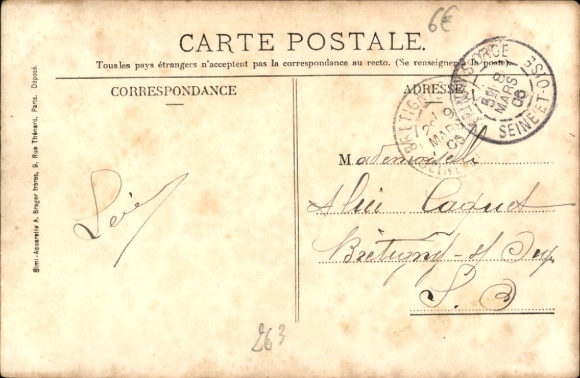 6€
CARTE POSTALE.
Tous les pays étrangers n'acceptent pas la correspondance au recto. (Se renseigner à la poste).
CORRESPONDANCE
ADRESSE
S-ORGE
SEINE-ET-OISE
5
8
MARS
06
BRÉTIGNY
9
MARS
06
Mademoiselle
Caquet
Brétigny-s/
S. O
263
Simi-Aquarelle A. Breger frères, 9, Rue Thénard, Paris. Déposé.